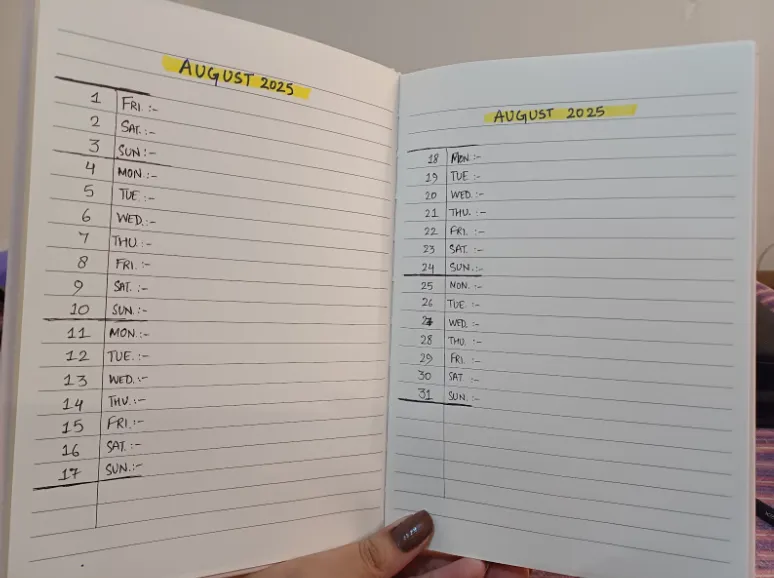 AUGUST 2025
1 FRI. :-
2 SAT. :-
3 SUN. :-
4 MON. :-
5 TUE :-
6 WED. :-
7 THU. :-
8 FRI. :-
9 SAT. :-
10 SUN. :-
11 MON. :-
12 TUE. :-
13 WED. :-
14 THU. :-
15 FRI. :-
16 SAT. :-
17 SUN. :-
AUGUST 2025
18 MON. :-
19 TUE :-
20 WED. :-
21 THU. :-
22 FRI. :-
23 SAT. :-
24 SUN. :-
25 MON. :-
26 TUE. :-
27 WED. :-
28 THU. :-
29 FRI. :-
30 SAT. :-
31 SUN. :-